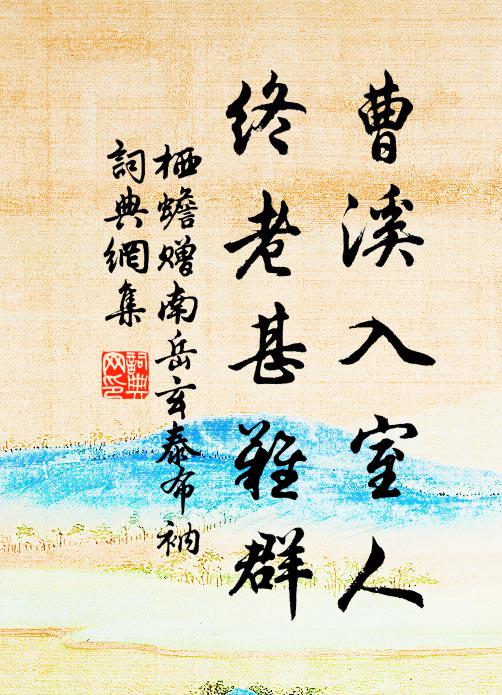 曹溪入室人
終老甚難群
栖蟾贈南岳玄泰布衲
詞典網集
詞典
网印